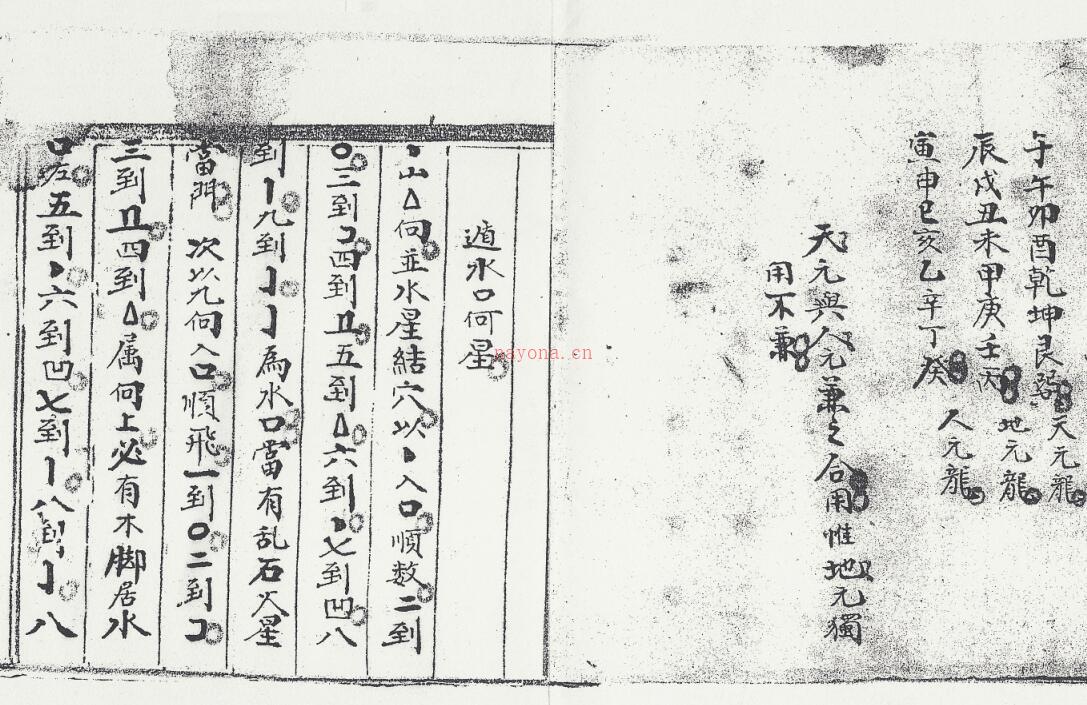 子午卯酉乾坤艮巽 天元龍
辰戌丑未甲庚壬丙 地元龍
寅申巳亥乙辛丁癸 人元龍
天元與人元兼之合用惟地元獨
用不兼
遁水口何星
丶山△何並水星結穴以丶入口順数二到
〇三到コ四到卫五到△六到丶七到凹八
到丨九到亅亅為水口當有乱石火星
當門 次以九何入口順飛一到〇二到コ
三到卫四到△属何上必有木脚居水
口左五到丶六到凹七到丨八到亅八
nayona.cn